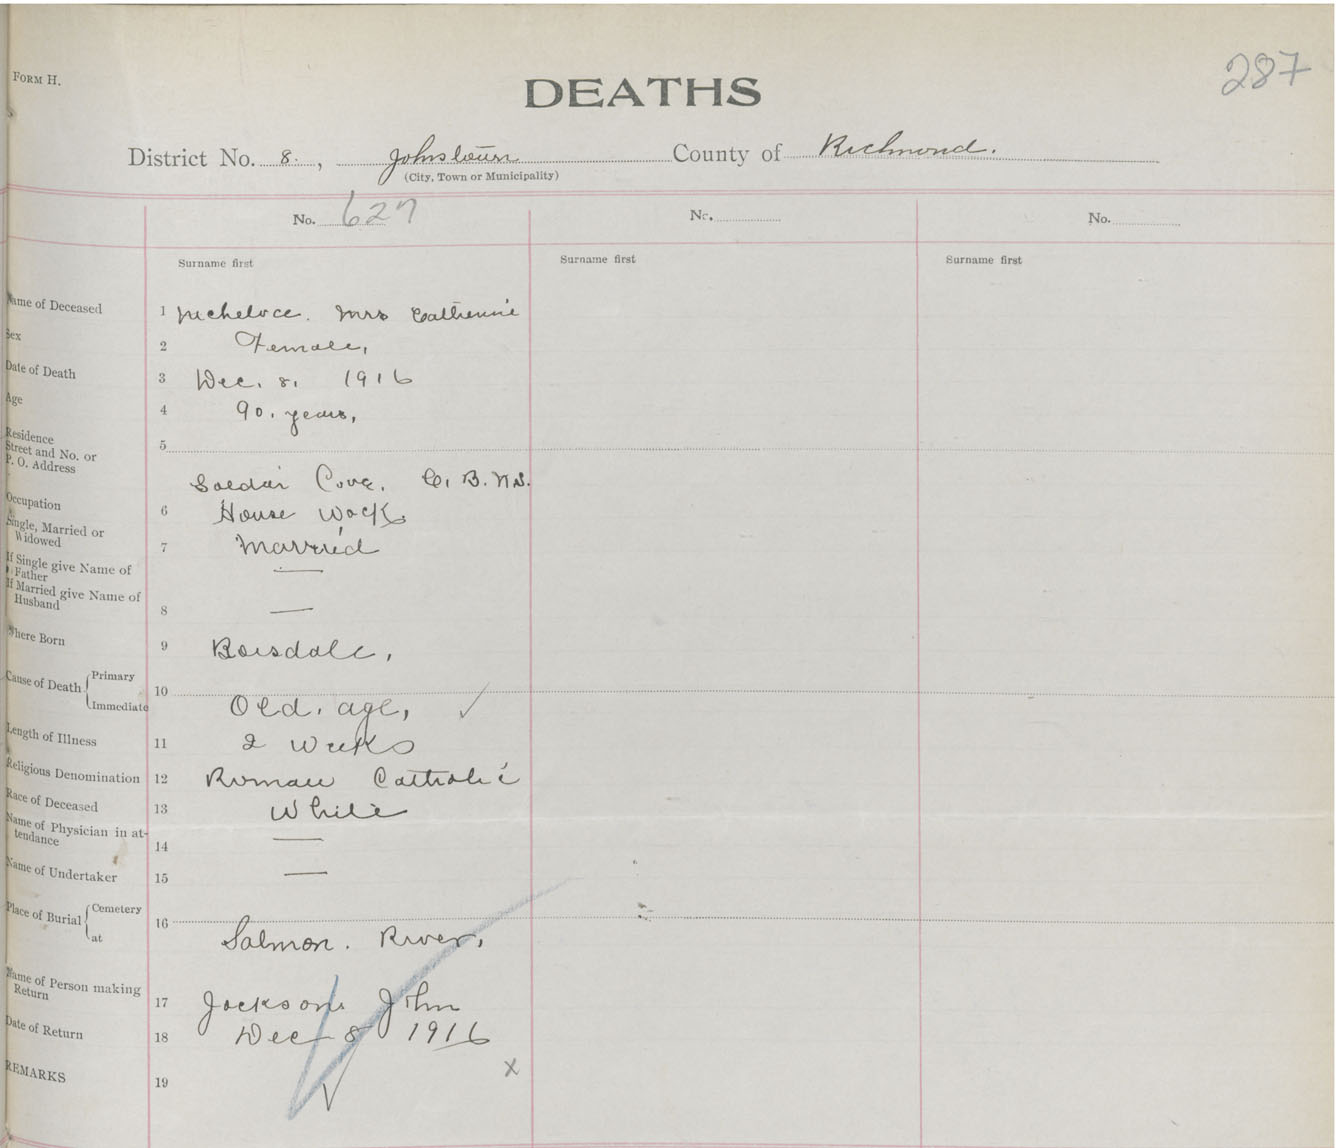 FORM H.
287
DEATHS
District No. 8. , Johnstown County of Richmond.
(City, Town or Municipality)
No. 627 No. No.
Surname first Surname first Surname first
Name of Deceased 1 Mrs Catherine
Sex 2 Female,
Date of Death 3 Dec. 8. 1916
Age 4 90. years,
Residence
Street and No. or 5
P. O. Address
Cove. C. B. N.S.
Occupation 6 House Work
Single, Married or
Widowed 7 Married
If Single give Name of
Father —
If Married give Name of
Husband 8 —
Where Born 9 Boisdale,
Cause of Death Primary 10
Immediate Old. age, ✓
Length of Illness 11 2 weeks
Religious Denomination 12 Roman Catholic
Race of Deceased 13 White
Name of Physician in at-
tendance 14 —
Name of Undertaker 15 —
Place of Burial Cemetery 16
at Salmon. River,
Name of Person making
Return 17 Jackson John
Date of Return 18 Dec 8 1916
REMARKS 19 x